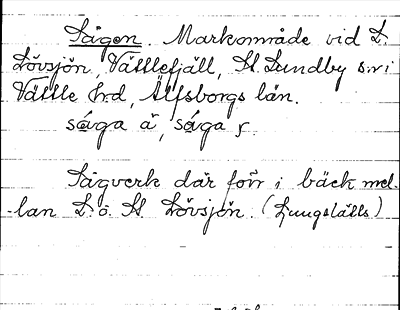 Sågen. Markområde vid L.
Lövsjön, Vättlefjäll, St. Lundby s:n i
Vättle hrd, Älfsborgs län.
såga å, såga f
Sågverk där förr i bäck mel-
-lan L. o. St Lövsjön. (Ljungslätts)